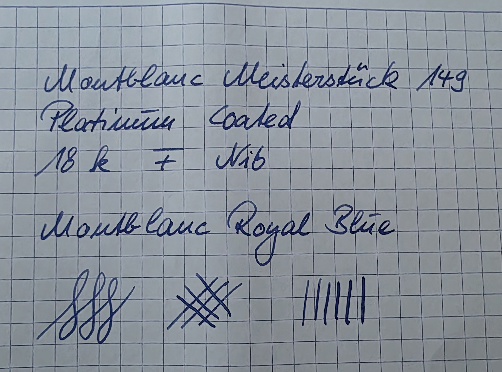 Montblanc Meisterstück 149
Platinum Coated
18 k F Nib
Montblanc Royal Blue